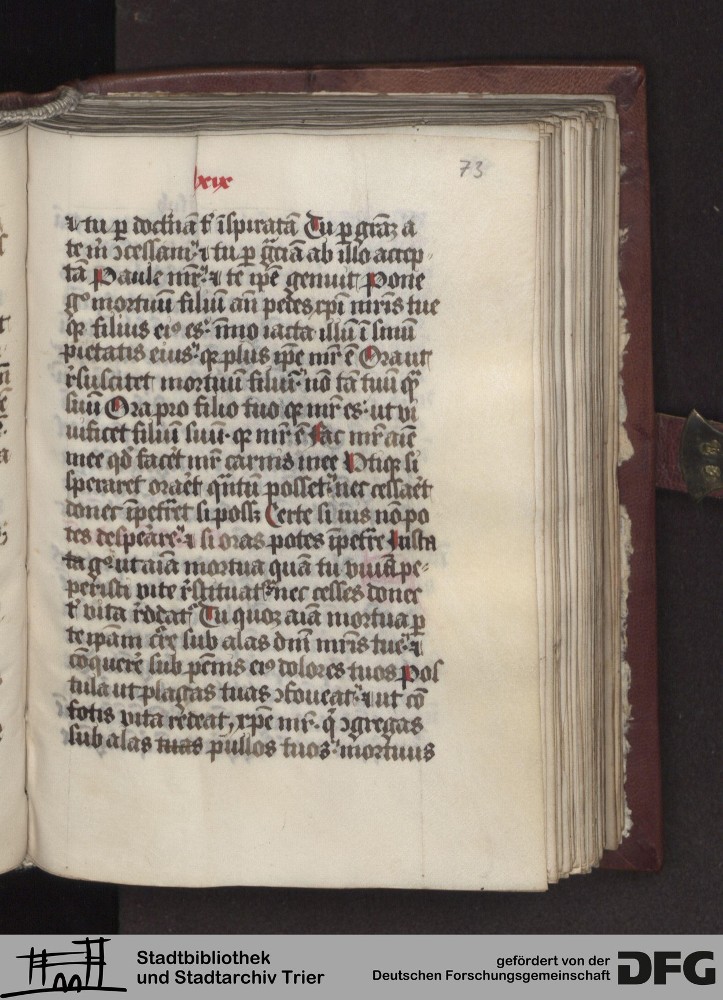 lxix
73
⁊ tu ꝑ doctͥnã t̃ ĩspiratã Tu ꝑ grãꝫ a
te m̃ ↄcessam ⁊ tu ꝑ gr̃ciãm ab illo accep-
tã Paule mr̃ ⁊ te ip̃e genuit Pone
gͦ mortuũ filiũ añ pedes xp̃i mr̃is tue
qꝛ filius eiꝰ es ĩmo iacta illũ ĩ sinũ
pietatis eius qꝛ plus ip̃e mr̃ ẽ Ora ut
r̃suscitet mortuũ filiũ nõ tã tuũ qͣ̃
suũ Ora pro filio tuo qꝛ mr̃ es ut vi
uificet filiũ suũ qꝛ mr̃ ẽ Fac mr̃ aĩe
mee qd̃ facẽt mr̃ carnis mee Utiqꝫ si
speraret oraẽt qͣ̃tũ posset nec cessaẽt
donec ĩpetr̃et si possꝫ Certe si uis nõ po
tes desperare ⁊ si oras potes ĩpetr̃e Iusta
gͦ ut aĩam mortuã quã tu viuã pe-
peristi vite r̃stituatͬ nec cesses donec
t̃ vita r̃ddatͬ Tu quoꝫ aĩa mortua ꝑ
te ip̃am cr̃e sub alas dñi mr̃is tue ⁊
cõquere sub pẽnis eiꝰ dolores tuos Pos
tula ut plagas tuas ↄfoueat ⁊ ut cõ
fotis vita r̃ddeat xp̃e mr̃ qͥ ↄgregas
sub alas tuas pullos tuos mortuus
Stadtbibliothek
und Stadtarchiv Trier
gefördert von der
Deutschen Forschungsgemeinschaft
DFG